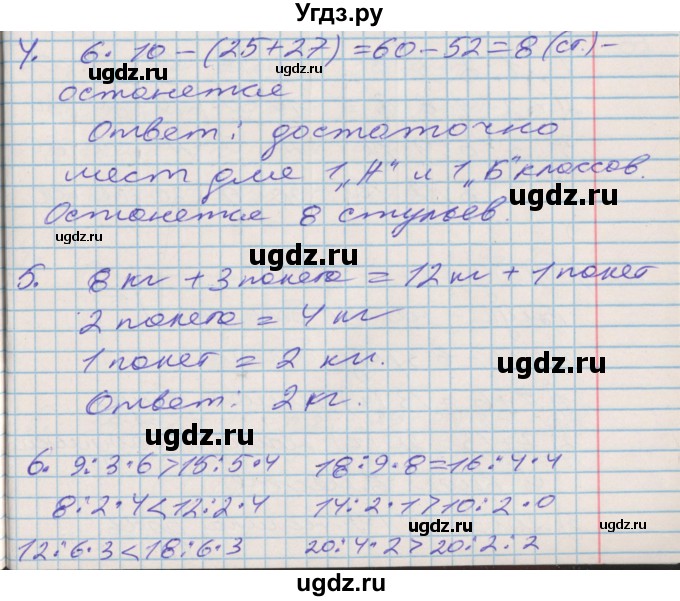 Угdз.ру
4. 6·10-(25+27)=60-52=8 (ст.)-
останется
Ответ: достаточно
мест для 1 „А" и 1 „Б" классов.
Останется 8 стульев.
5. 8 кг + 3 пакета = 12 кг + 1 пакет
2 пакета = 4 кг
1 пакет = 2 кг.
Ответ: 2 кг.
6. 9:3·6>15:5·4 18:9·8=16:4·4
8:2·4<12:2·4 14:2·1>10:2·0
12:6·3<18:6·3 20:4·2>20:2:2
ugdz.ru
ugdz.ru
ugdz.ru
ugdz.ru
ugdz.ru
ugdz.ru
ugdz.ru
ugdz.ru
ugdz.ru
ugdz.ru
ugdz.ru
ugdz.ru
ugdz.ru